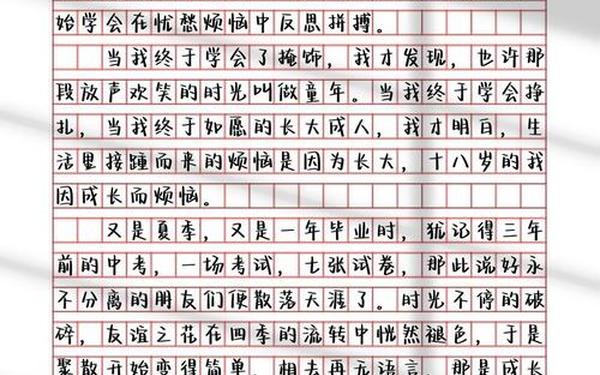 始学会在忧愁烦恼中反思拼搏。
当我终于学会了掩饰，我才发现，也许那
段放声欢笑的时光叫做童年。当我终于学会挣
扎，当我终于如愿的长大成人，我才明白，生
活里接踵而来的烦恼是因为长大，十八岁的我
因成长而烦恼。
又是夏季，又是一年毕业时，犹记得三年
前的中考，一场考试，七张试卷，那些说好永
不分离的朋友们便散落天涯了。时光不停的破
碎，友谊之花在四季的流转中恍然褪色，于是
聚散开始变得简单，相去再无语言，那是成长